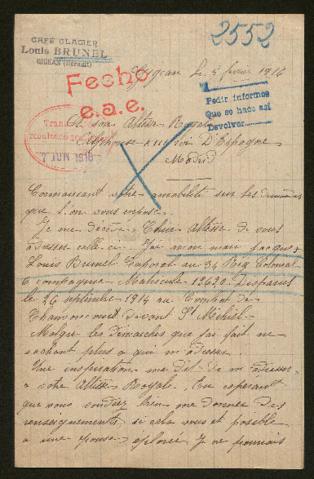 CAFÉ GLACIER
Louis BRUNEL
GIGEAN (Hérault)
2552
Gigean le 5 février 1916
Fecho
e.a.e.
Pedir informes
Que se hace así
Devolver
7 JUN 1916
A son Altesse Royale
Alphonse D'Espagne
Madrid
Connaissant votre amabilité sur les demandes
que l'on vous expose
Je me decide Altesse de vous
adresser celle ci. J'ai mon mari
Louis Brunel Caporal au 34 Reg Colonial
Compagnie Matricule 12628 Disparut
le 26 septembre 1914 au Combat de
devant St Mihiel
Malgre les démarches que j'ai fait ne
sachant plus a qui m'adresser
Une inspiration me dit de m'adresser
a votre Altesse Royale. En esperant
que vous voudrez bien me donner des
renseignements, si cela vous est possible
a une epouse éplorée Je ne pourrais